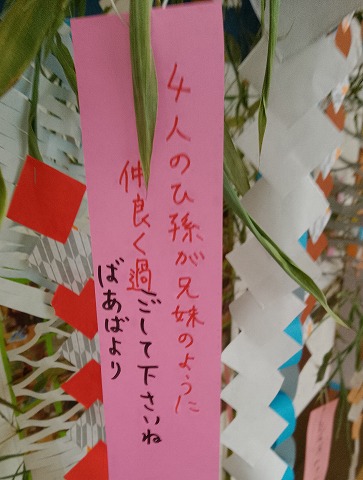 4人のひ孫が兄妹のように
仲良く過ごして下さいね
ばあばより